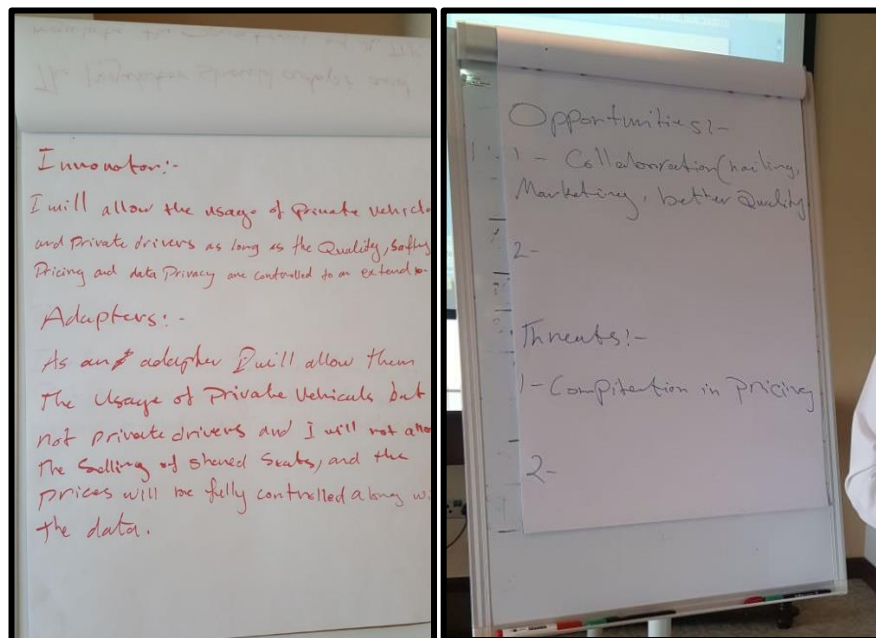 Innovator:-
I will allow the usage of Private Vehicle
and private drivers as long as the Quality, Safty,
Pricing and data Privacy are controlled to an extend
Adapters:-
As an adapter I will allow them
the Usage of Private Vehicals but
not private drivers and I will not allow
the Selling of shared Seats, and the
prices will be fully controlled along wi
the data.
Opportunities:-
1- Collaboration (hailing,
Marketing, better Quality
2-
Threats:-
1- Compitention in pricing
2-